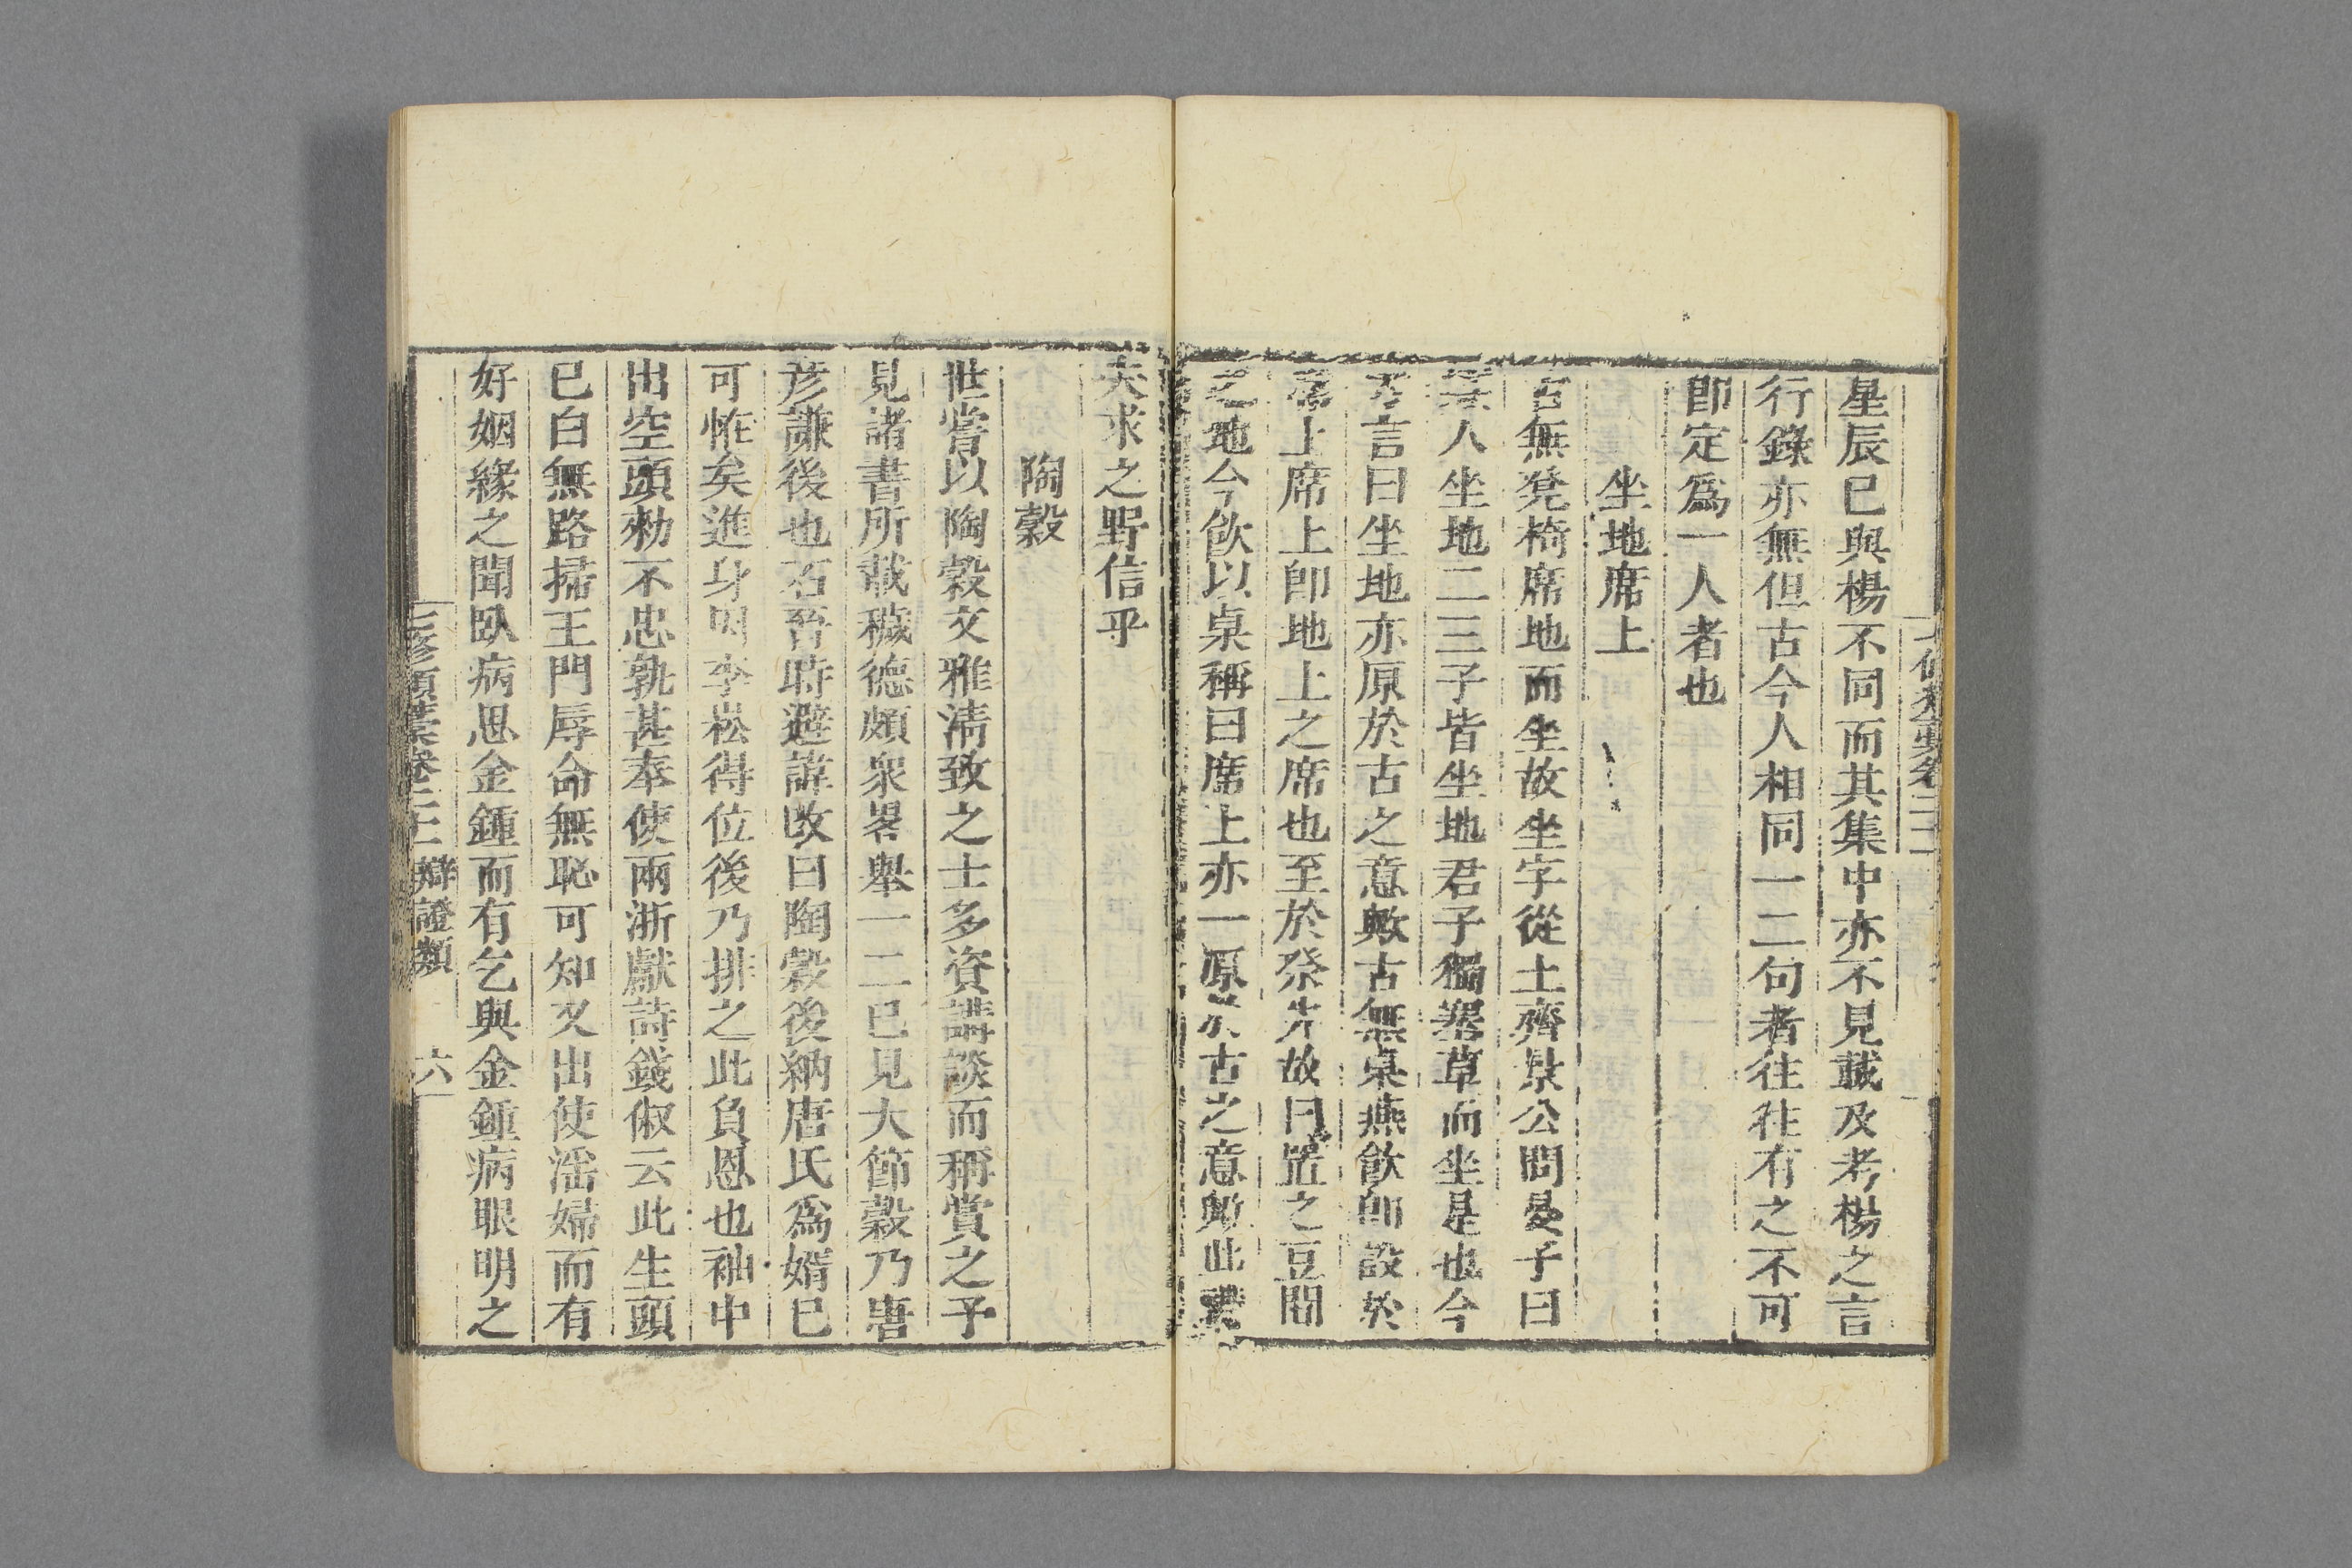 星辰已與楊不同而其集中亦不見載及考楊之言
行錄亦無但古今人相同一二句者往往有之不可
卽定爲一人者也
坐地席上
古無凳椅席地而坐故坐字從土齊景公問晏子曰
人坐地二三子皆坐地君子獨搴草而坐是也今
言曰坐地亦原於古之意歟古無桌燕飮卽設於
上席上卽地上之席也至於祭先故曰置之豆間
之地今飮以桌稱曰席上亦一原於古之意歟此禮
失求之野信乎
陶穀
世嘗以陶穀文雅淸致之士多資講談而稱賞之予
見諸書所載穢德頗衆畧舉一二已見大節穀乃唐
彥謙後也石晉時避諱改曰陶穀後納唐氏爲婿已
可恠矣進身由李崧得位後乃排之此負恩也袖中
出空頭勑不忠孰甚奉使兩浙獻詩錢俶云此生頭
已白無路掃王門辱命無恥可知又出使滛婦而有
好姻緣之聞臥病思金鍾而有乞與金鍾病眼明之
七修類藁卷二十 辯證類 六